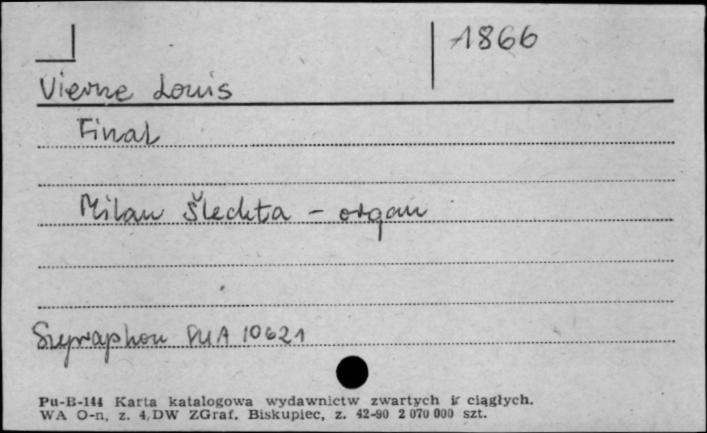 1866
Vierne Louis
Final
Milan Šlechta - organ
Supraphon DUA 10621
Pu-B-144 Karta katalogowa wydawnictw zwartych i ciągłych.
WA O-n, z. 4, DW ZGraf. Biskupiec, z. 42-90 2 070 000 szt.